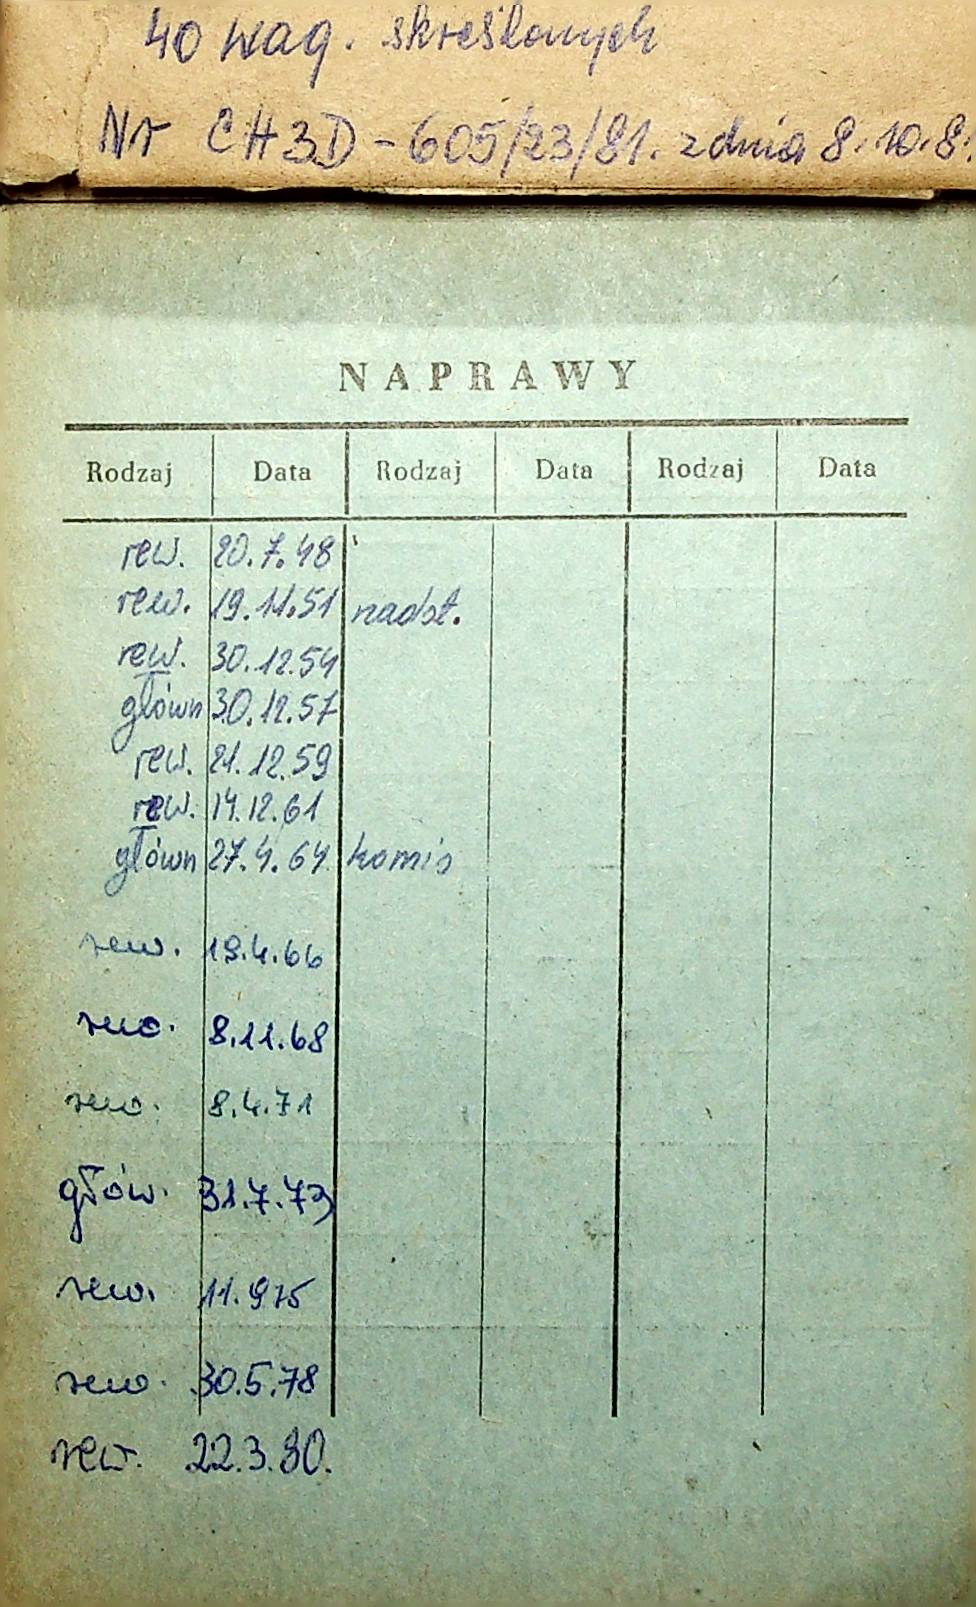 40 wag. skreślonych
Nr CH3D-605/23/81. z dnia 8.10.8
NAPRAWY
Rodzaj Data Rodzaj Data Rodzaj Data
rew. 20.7.48
rew. 19.11.51 nadst.
rew. 30.12.54
główn 30.12.57
rew. 21.12.59
rew. 14.12.61
główn 27.4.64 komis
rew. 19.4.66
rew. 8.11.68
rew. 8.4.71
głów. 31.7.73
rew. 11.9 75
rew. 30.5.78
rew. 22.3.80.